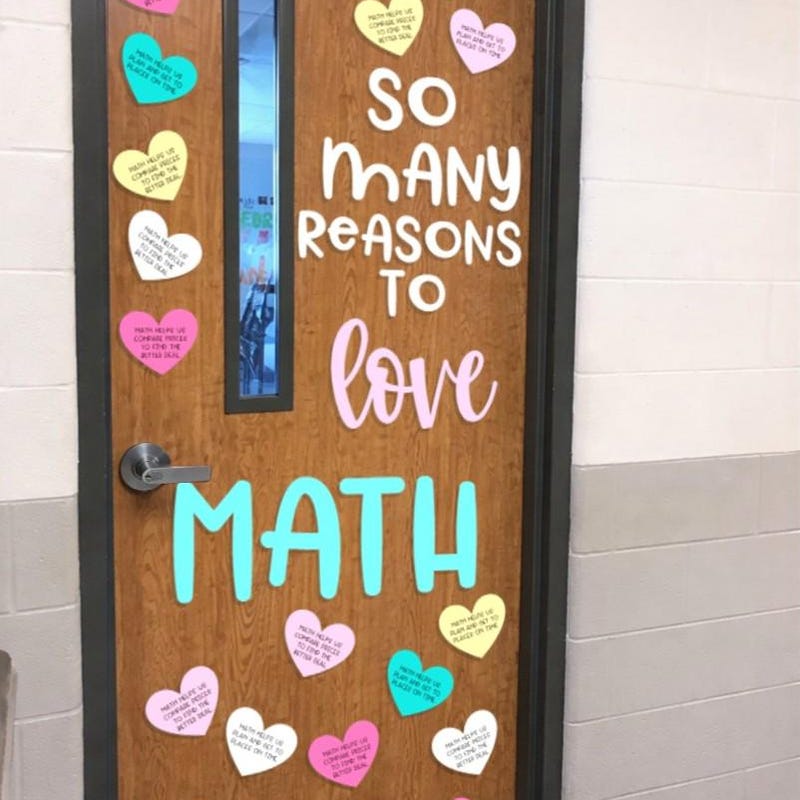 MATH HELPS US
COMPARE PRICES
TO FIND THE
BETTER DEAL
MATH HELPS US
PLAN AND GET TO
PLACES ON TIME
MATH HELPS US
PLAN AND GET TO
PLACES ON TIME
MATH HELPS US
COMPARE PRICES
TO FIND THE
BETTER DEAL
MATH HELPS US
COMPARE PRICES
TO FIND THE
BETTER DEAL
MATH HELPS US
COMPARE PRICES
TO FIND THE
BETTER DEAL
SO
MANY
REASONS
TO
love
MATH
MATH HELPS US
COMPARE PRICES
TO FIND THE
BETTER DEAL
MATH HELPS US
PLAN AND GET TO
PLACES ON TIME
MATH HELPS US
PLAN AND GET TO
PLACES ON TIME
MATH HELPS US
COMPARE PRICES
TO FIND THE
BETTER DEAL
MATH HELPS US
PLAN AND GET TO
PLACES ON TIME
MATH HELPS US
COMPARE PRICES
TO FIND THE
BETTER DEAL
MATH HELPS US
COMPARE PRICES
TO FIND THE
BETTER DEAL